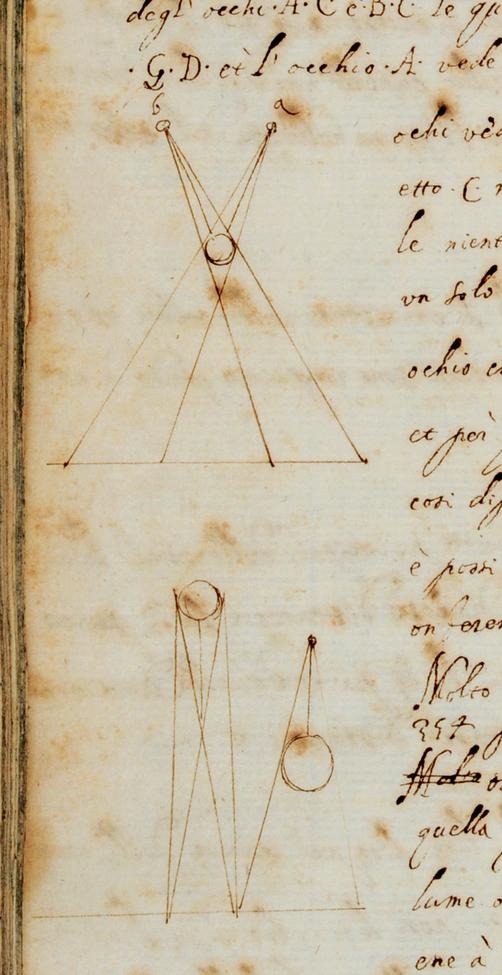 degl' occhi · A · C e B · C · le qu
· G · D · et l' occhio · A · vede
b a
ochi ved
etto · C ·
le nient
un solo
ochio
et però
cosi dif
è possi
on feren
Molto
354
Molto
quella
lume o
ene à